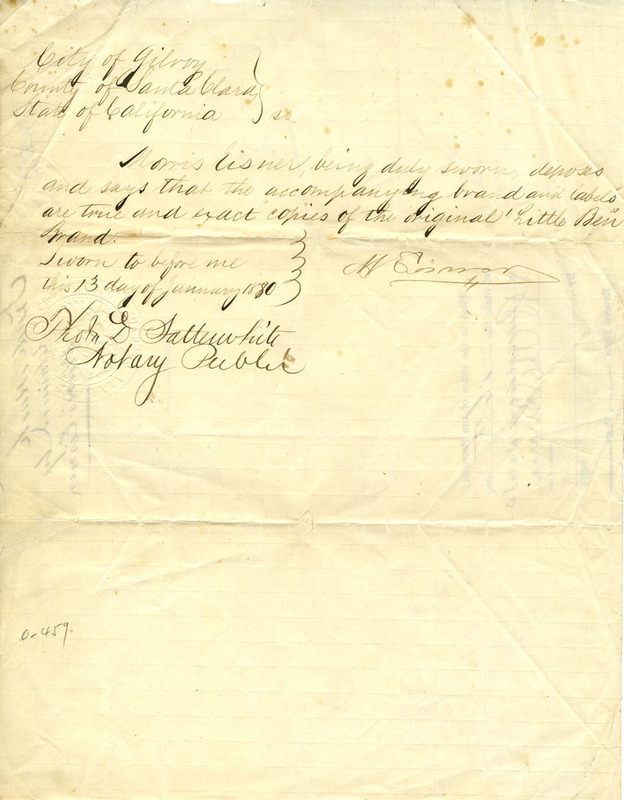 City of Gilroy
County of Santa Clara
State of California } ss
Morris Eisner, being duly sworn, deposes
and says that the accompanying brand and labels
are true and exact copies of the original "Little Ben"
brand.
Sworn to before me
this 13 day of January 1880
M Eisner
Thos. D Satterwhite
Notary Public
O-459.